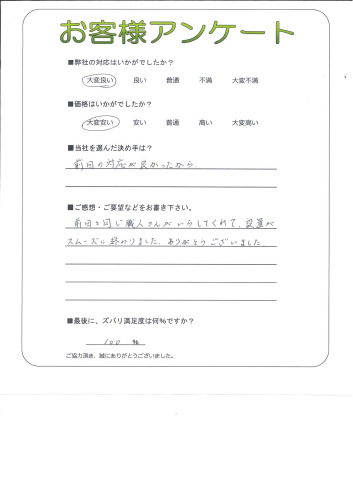 お客様アンケート
■弊社の対応はいかがでしたか？
大変良い 良い 普通 不満 大変不満
■価格はいかがでしたか？
大変安い 安い 普通 高い 大変高い
■当社を選んだ決め手は？
前回の対応が良かったから
■ご感想・ご要望などをお書き下さい。
前回と同じ職人さんがいらしてくれて、設置が
スムーズに終わりました。ありがとうございました
■最後に、ズバリ満足度は何%ですか？
100 %
ご協力頂き、誠にありがとうございました。